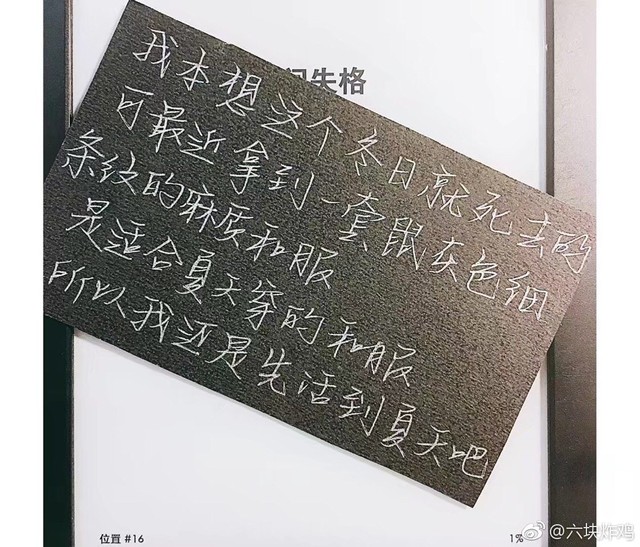 间失格
我本想这个冬日就死去的
可最近拿到一套鼠灰色细
条纹的麻质和服
是适合夏天穿的和服
所以我还是先活到夏天吧
位置 #16
1%
@六块炸鸡